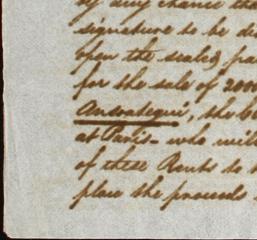 of any chance tha
signature to be di
upon the sealed pa
for the sale of 2000
Ansoategui, the b
at Paris - who will
of these Rents to t
place the proceeds